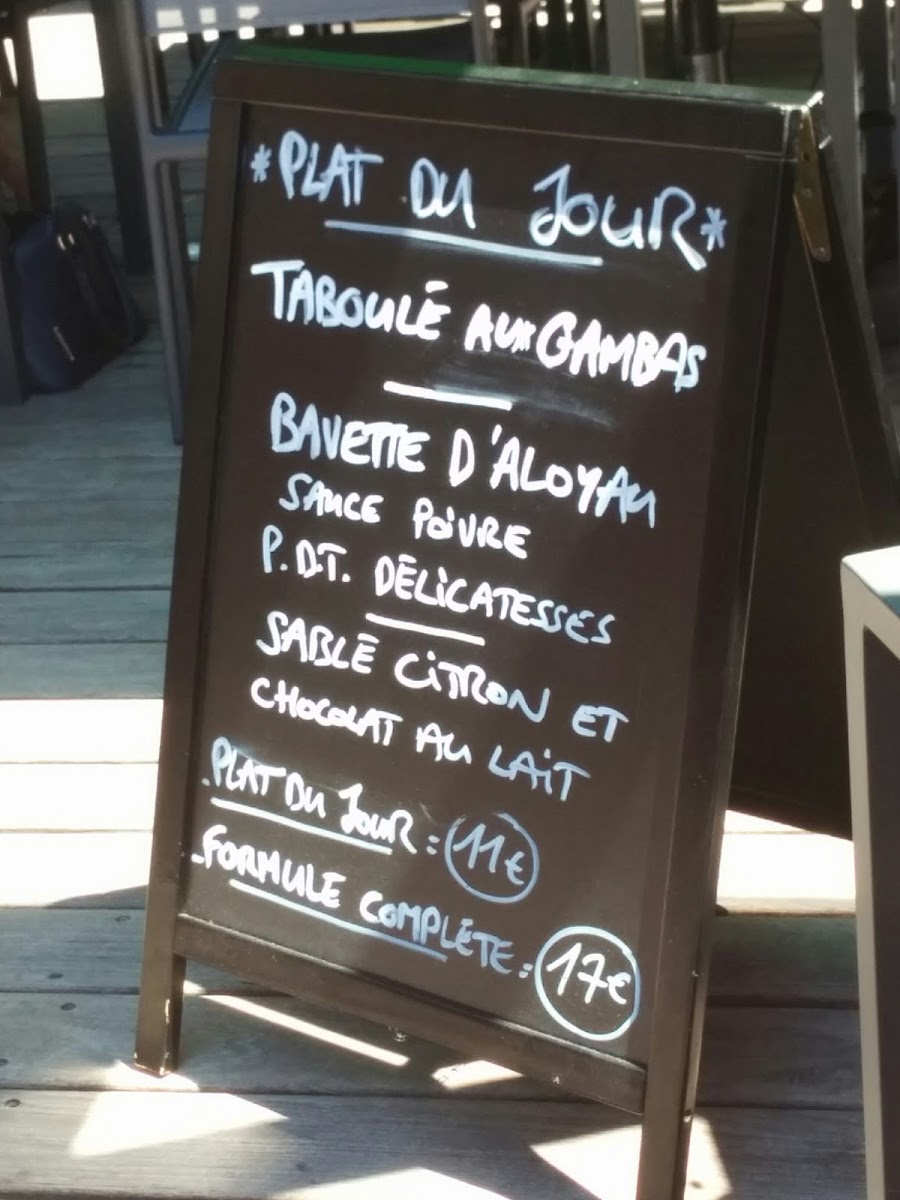 *PLAT DU JOUR*
TABOULÉ AUX GAMBAS
BAVETTE D'ALOYAU
SAUCE POIVRE
P.D.T. DÉLICATESSES
SABLÉ CITRON ET
CHOCOLAT AU LAIT
-PLAT DU JOUR: 11€
-FORMULE COMPLÈTE: 17€